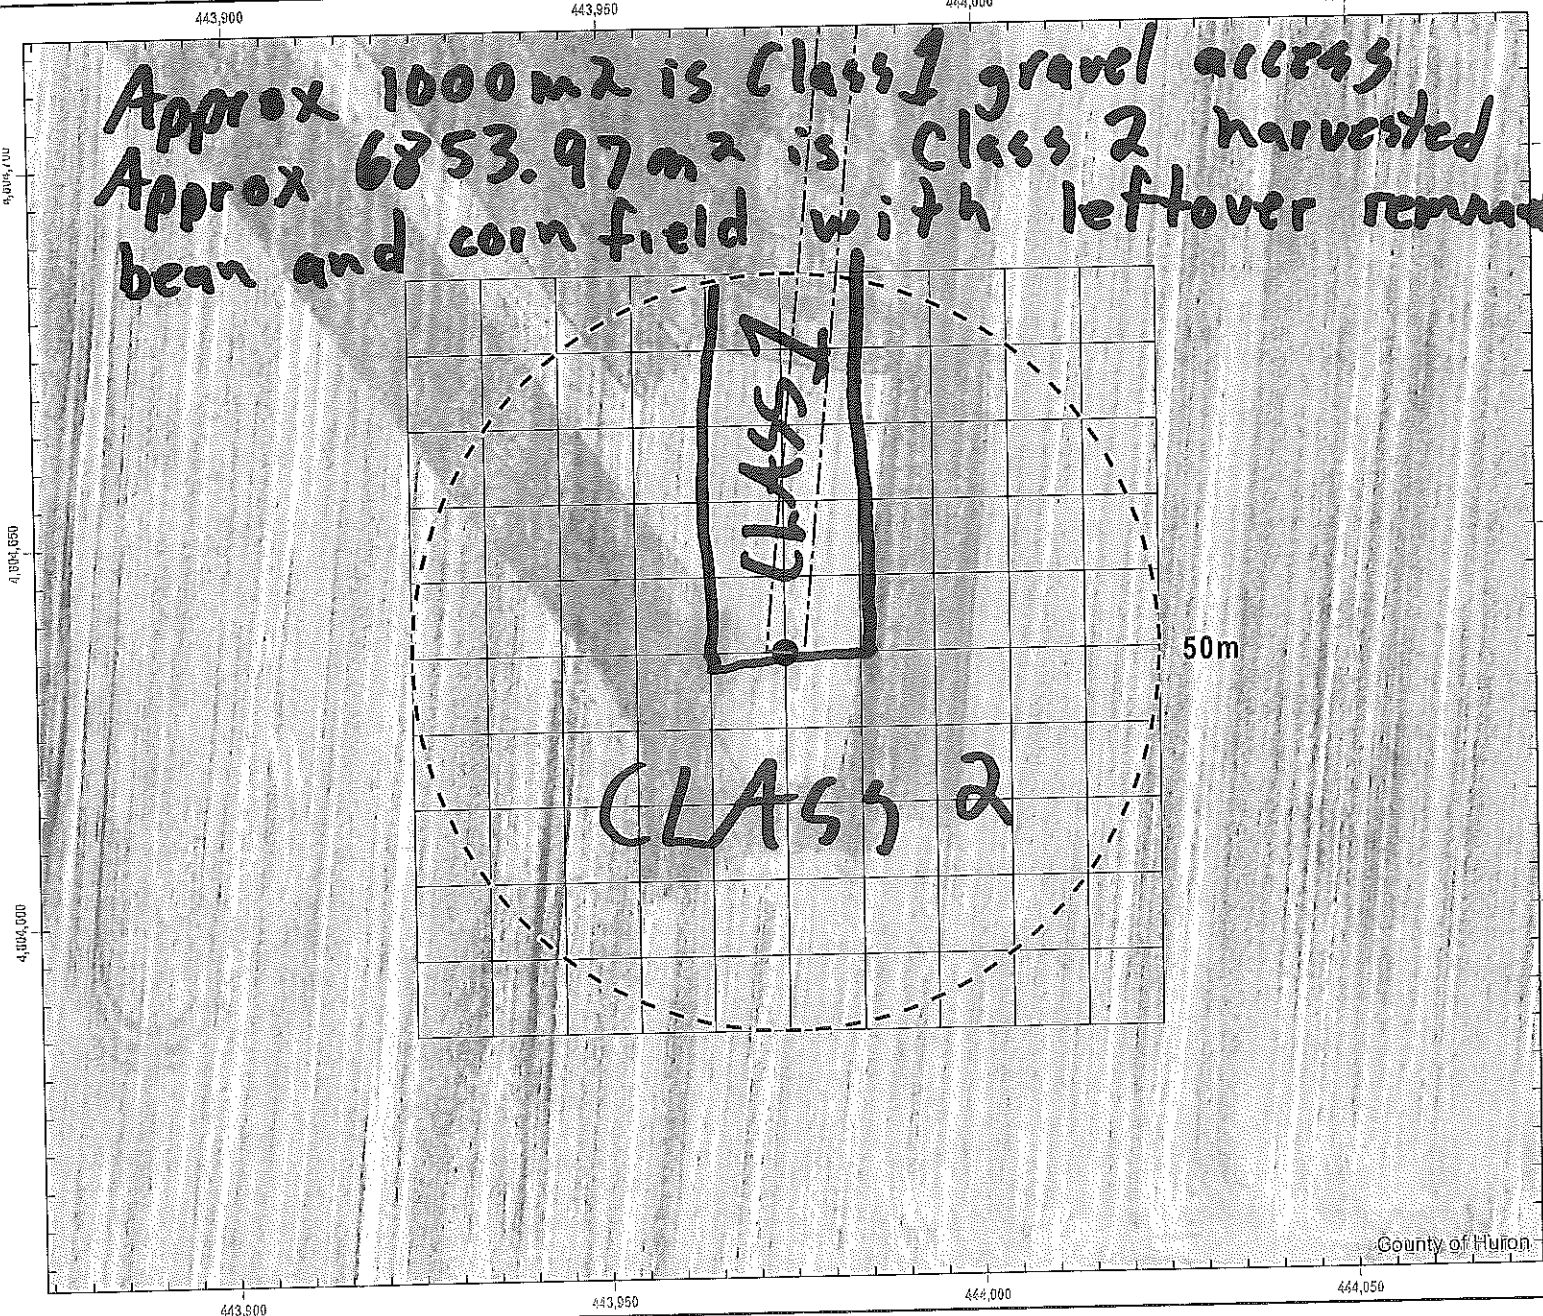 443,900 443,950 444,000
Approx 1000m2 is Class 1 gravel access
Approx 6853.97m² is Class 2 harvested
bean and corn field with leftover
CLASS 1
4,804,650
50m
CLASS 2
4,804,600
County of Huron
443,900 443,950 444,000 444,050